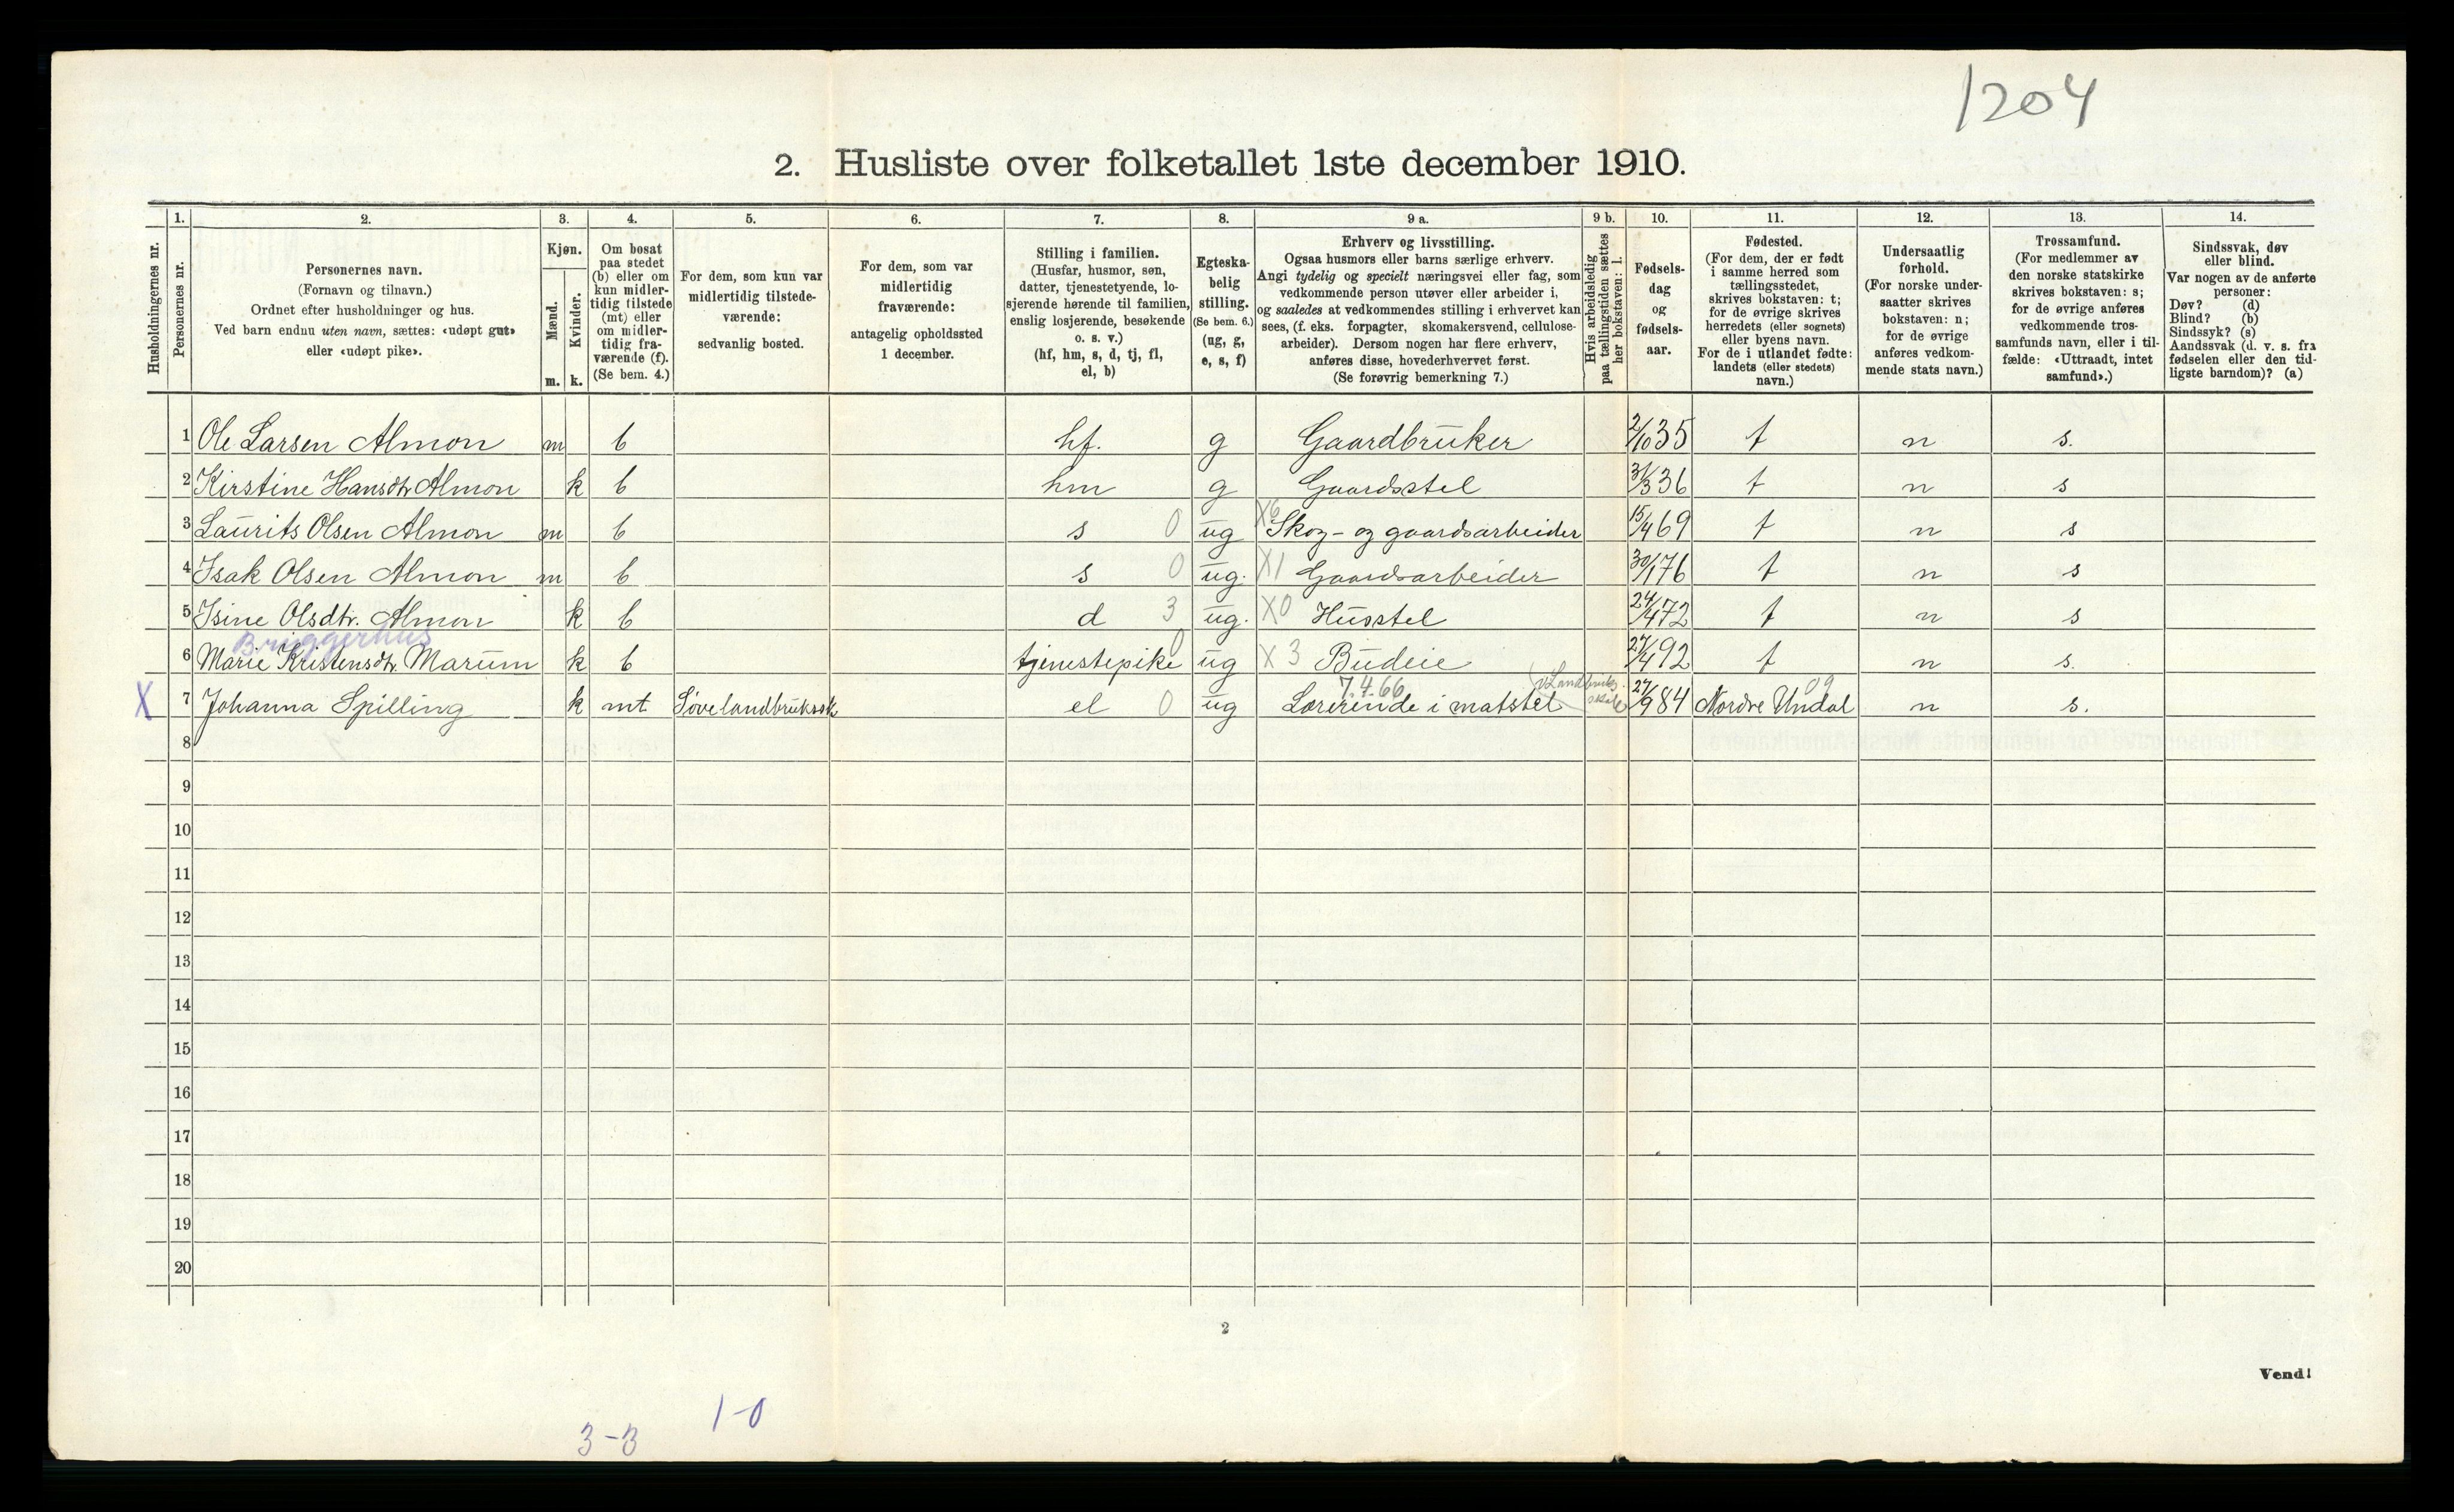 1204
2. Husliste over folketallet 1ste december 1910.
Husholdningernes nr.
1. Personernes nr.
2. Personernes navn.
(Fornavn og tilnavn.)
Ordnet efter husholdninger og hus.
Ved barn endnu uten navn, sættes: «udøpt gut»
eller «udøpt pike».
3. Kjøn.
Mænd. m.
Kvinder. k.
4. Om bosat
paa stedet
(b) eller om
kun midler-
tidig tilstede
(mt) eller
om midler-
tidig fra-
værende (f).
(Se bem. 4.)
5. For dem, som kun var
midlertidig tilstede-
værende:
sedvanlig bosted.
6. For dem, som var
midlertidig
fraværende:
antagelig opholdssted
1 december.
7. Stilling i familien.
(Husfar, husmor, søn,
datter, tjenestetyende, lo-
sjerende hørende til familien,
enslig losjerende, besøkende
o. s. v.)
(hf, hm, s, d, tj, fl,
el, b)
8. Egteska-
belig
stilling.
(Se bem. 6.)
(ug, g,
e, s, f)
9 a. Erhverv og livsstilling.
Ogsaa husmors eller barns særlige erhverv.
Angi tydelig og specielt næringsvei eller fag, som
vedkommende person utøver eller arbeider i,
og saaledes at vedkommendes stilling i erhvervet kan
sees, (f. eks. forpagter, skomakersvend, cellulose-
arbeider). Dersom nogen har flere erhverv,
anføres disse, hovederhvervet først.
(Se forøvrig bemerkning 7.)
9 b. Hvis arbeidsledig
paa tællingstiden sættes
her bokstaven: l.
10. Fødsels-
dag
og
fødsels-
aar.
11. Fødested.
(For dem, der er født
i samme herred som
tællingsstedet,
skrives bokstaven: t;
for de øvrige skrives
herredets (eller sognets)
eller byens navn.
For de i utlandet fødte:
landets (eller stedets)
navn.)
12. Undersaatlig
forhold.
(For norske under-
saatter skrives
bokstaven: n;
for de øvrige
anføres vedkom-
mende stats navn.)
13. Trossamfund.
(For medlemmer av
den norske statskirke
skrives bokstaven: s;
for de øvrige anføres
vedkommende tros-
samfunds navn, eller i til-
fælde: «Uttraadt, intet
samfund».)
14. Sindssvak, døv
eller blind.
Var nogen av de anførte
personer:
Døv? (d)
Blind? (b)
Sindssyk? (s)
Aandssvak (d. v. s. fra
fødselen eller den tid-
ligste barndom)? (a)
1 Ole Larsen Almon m b hf. g Gaardbruker 2/10 35 t n s.
2 Kirstine Hansdtr Almon k b hm g Gaardsstel 31/3 36 t n s
3 Laurits Olsen Almon m b s 0 ug X6 Skog- og gaardsarbeider 15/4 69 t n s
4 Isak Olsen Almon m b s 0 ug. X1 Gaardsarbeider 30/1 76 t n s
5 Isine Olsdtr. Almon k b d 3 ug. X0 Husstel 24/4 72 t n s
Bryggerhus
6 Marie Kristensdtr. Marum k b tjenestepike 0 ug X 3 Budeie 27/4 92 t n s.
7.4.66 v. Landbruks skole 09
X 7 Johanna Spilling k mt Søve landbrukssk el 0 ug Lærerinde i matstel 27/9 84 Nordre Undal n s.
8
9
10
11
12
13
14
15
16
17
18
19
20
2
Vend!
1-0
3-3